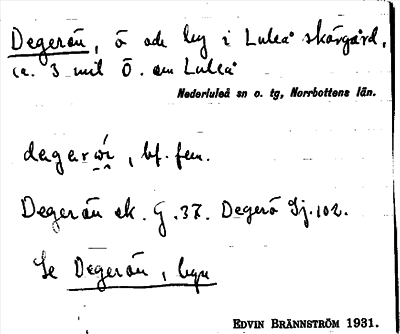 Degerön, ö och by i Luleå skärgård,
ca. 3 mil Ö. om Luleå
Nederluleå sn o. tg, Norrbottens län.
dagarøí, bf. fem.
Degerön ek. G. 37. Degerö Sj. 102.
Se Degerön, byn
EDVIN BRÄNNSTRÖM 1931.